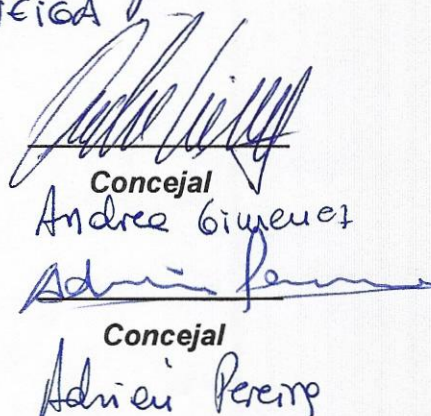 VEIGA
Concejal
Andrea Gimenez
Concejal
Adrian Pereira